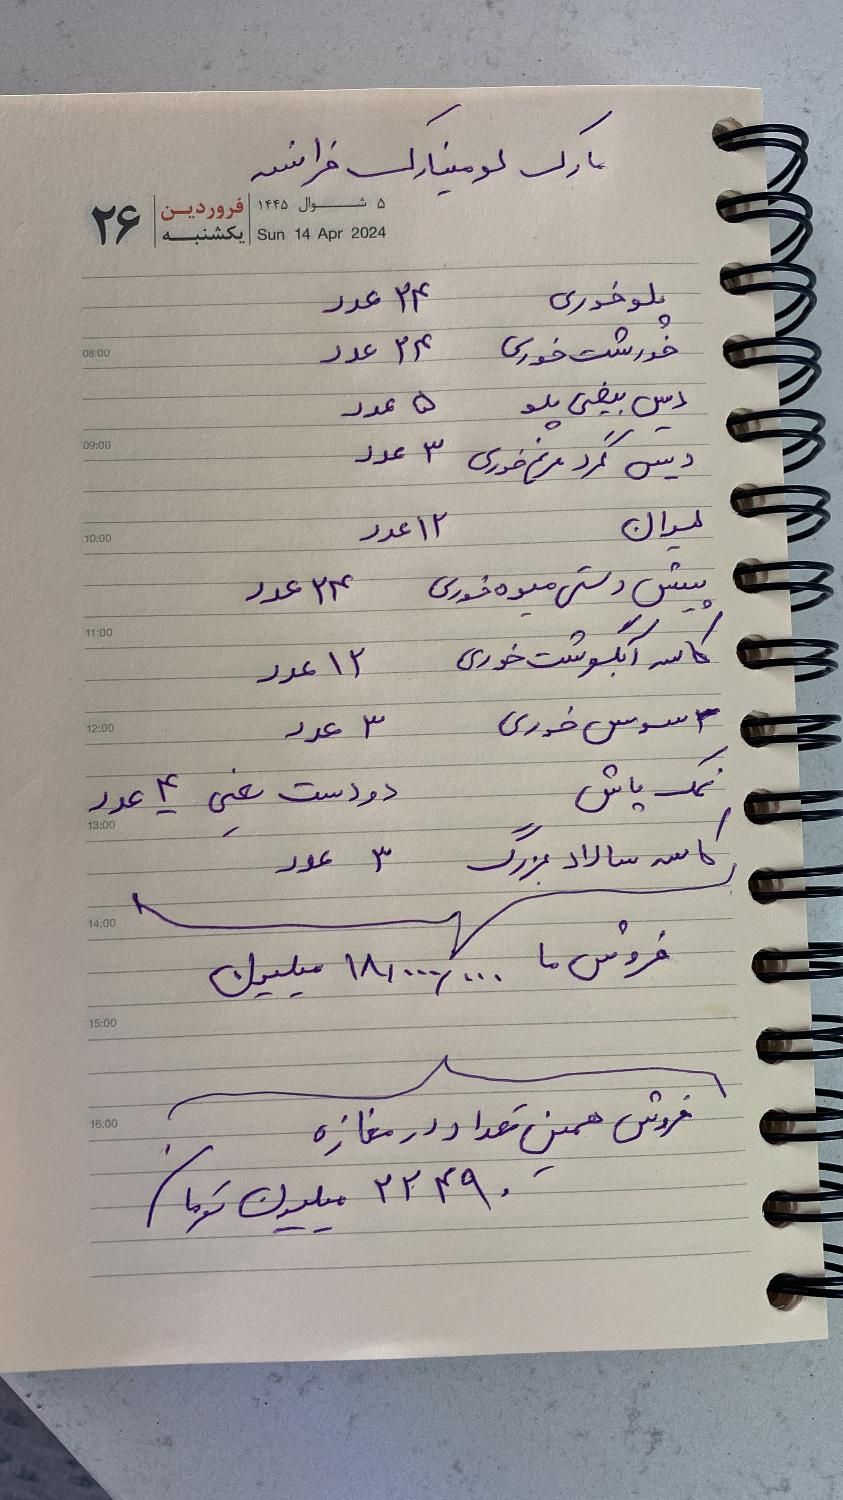 مارک لومینارک فرانسه
۲۶ فروردین ۵ شوال ۱۴۴۵
یکشنبه Sun 14 Apr 2024
پلوخوری ۲۴ عدد
08:00
خورشت خوری ۲۴ عدد
دیس بیضی پلو ۵ عدد
09:00
دیس گرد مرغ خوری ۳ عدد
10:00
لیوان ۱۲ عدد
پیش دستی میوه خوری ۲۴ عدد
11:00
کاسه آبگوشت خوری ۱۲ عدد
12:00
۳ سوس خوری ۳ عدد
نمک پاش دو دست یعنی ۴ عدد
13:00
کاسه سالاد بزرگ ۳ عدد
14:00
فروش ما ۱۸,۰۰۰,۰۰۰ میلیون
15:00
16:00
فروش همین تعداد در مغازه
۲۲۴۹۰ میلیون توما